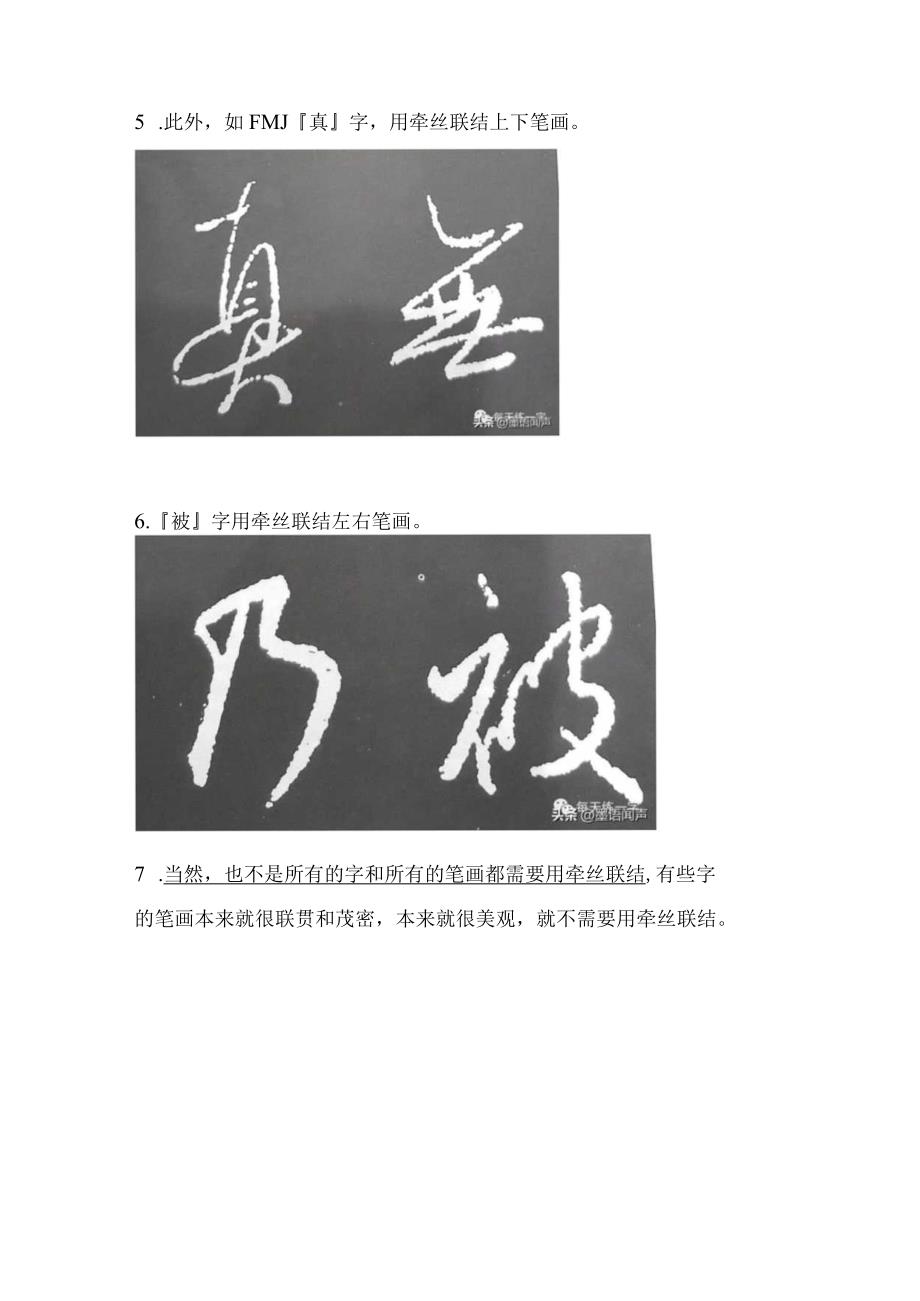 5 .此外，如 FMJ『真』字，用牵丝联结上下笔画。
真 無
每天练一字
头条@墨语闻声
6.『被』字用牵丝联结左右笔画。
乃 被
每天练一字
头条@墨语闻声
7 .当然，也不是所有的字和所有的笔画都需要用牵丝联结,有些字
的笔画本来就很联贯和茂密，本来就很美观，就不需要用牵丝联结。